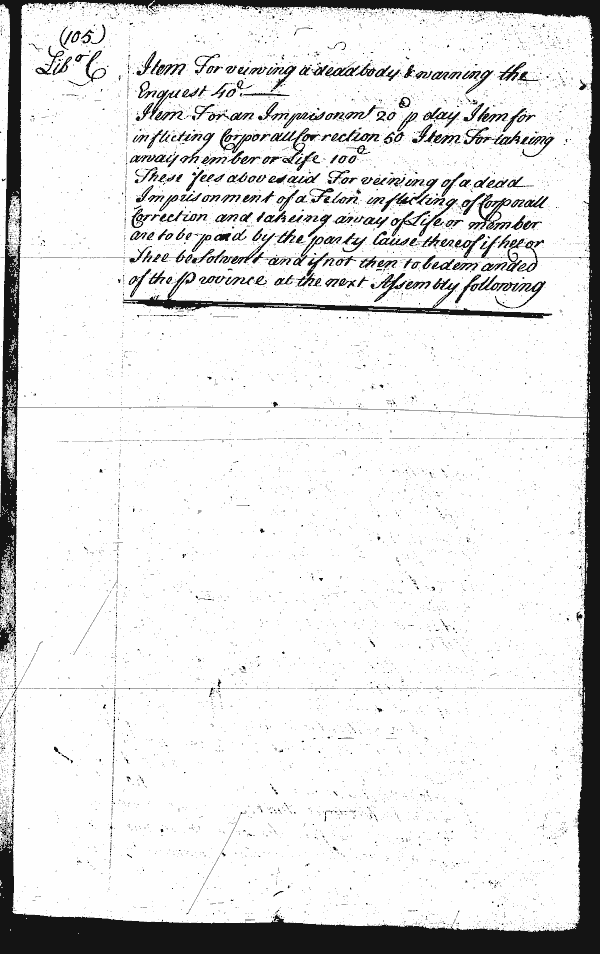 (105)
Lib° C
Item For veiwing a dead body & warning the
Enquest 40d.
Item For an Imprisonmt 20d p day Item for
inflicting Corporall Correction 50 Item For takeing
away member or Life 100d
These fees abovesaid For veiwing of a dead
Imprisonment of a Felon inflicting of Corporall
Correction and takeing away of Life or member
are to be paid by the party Cause thereof if hee or
Shee be Solvent and if not then to be demanded
of the Province at the next Assembly following